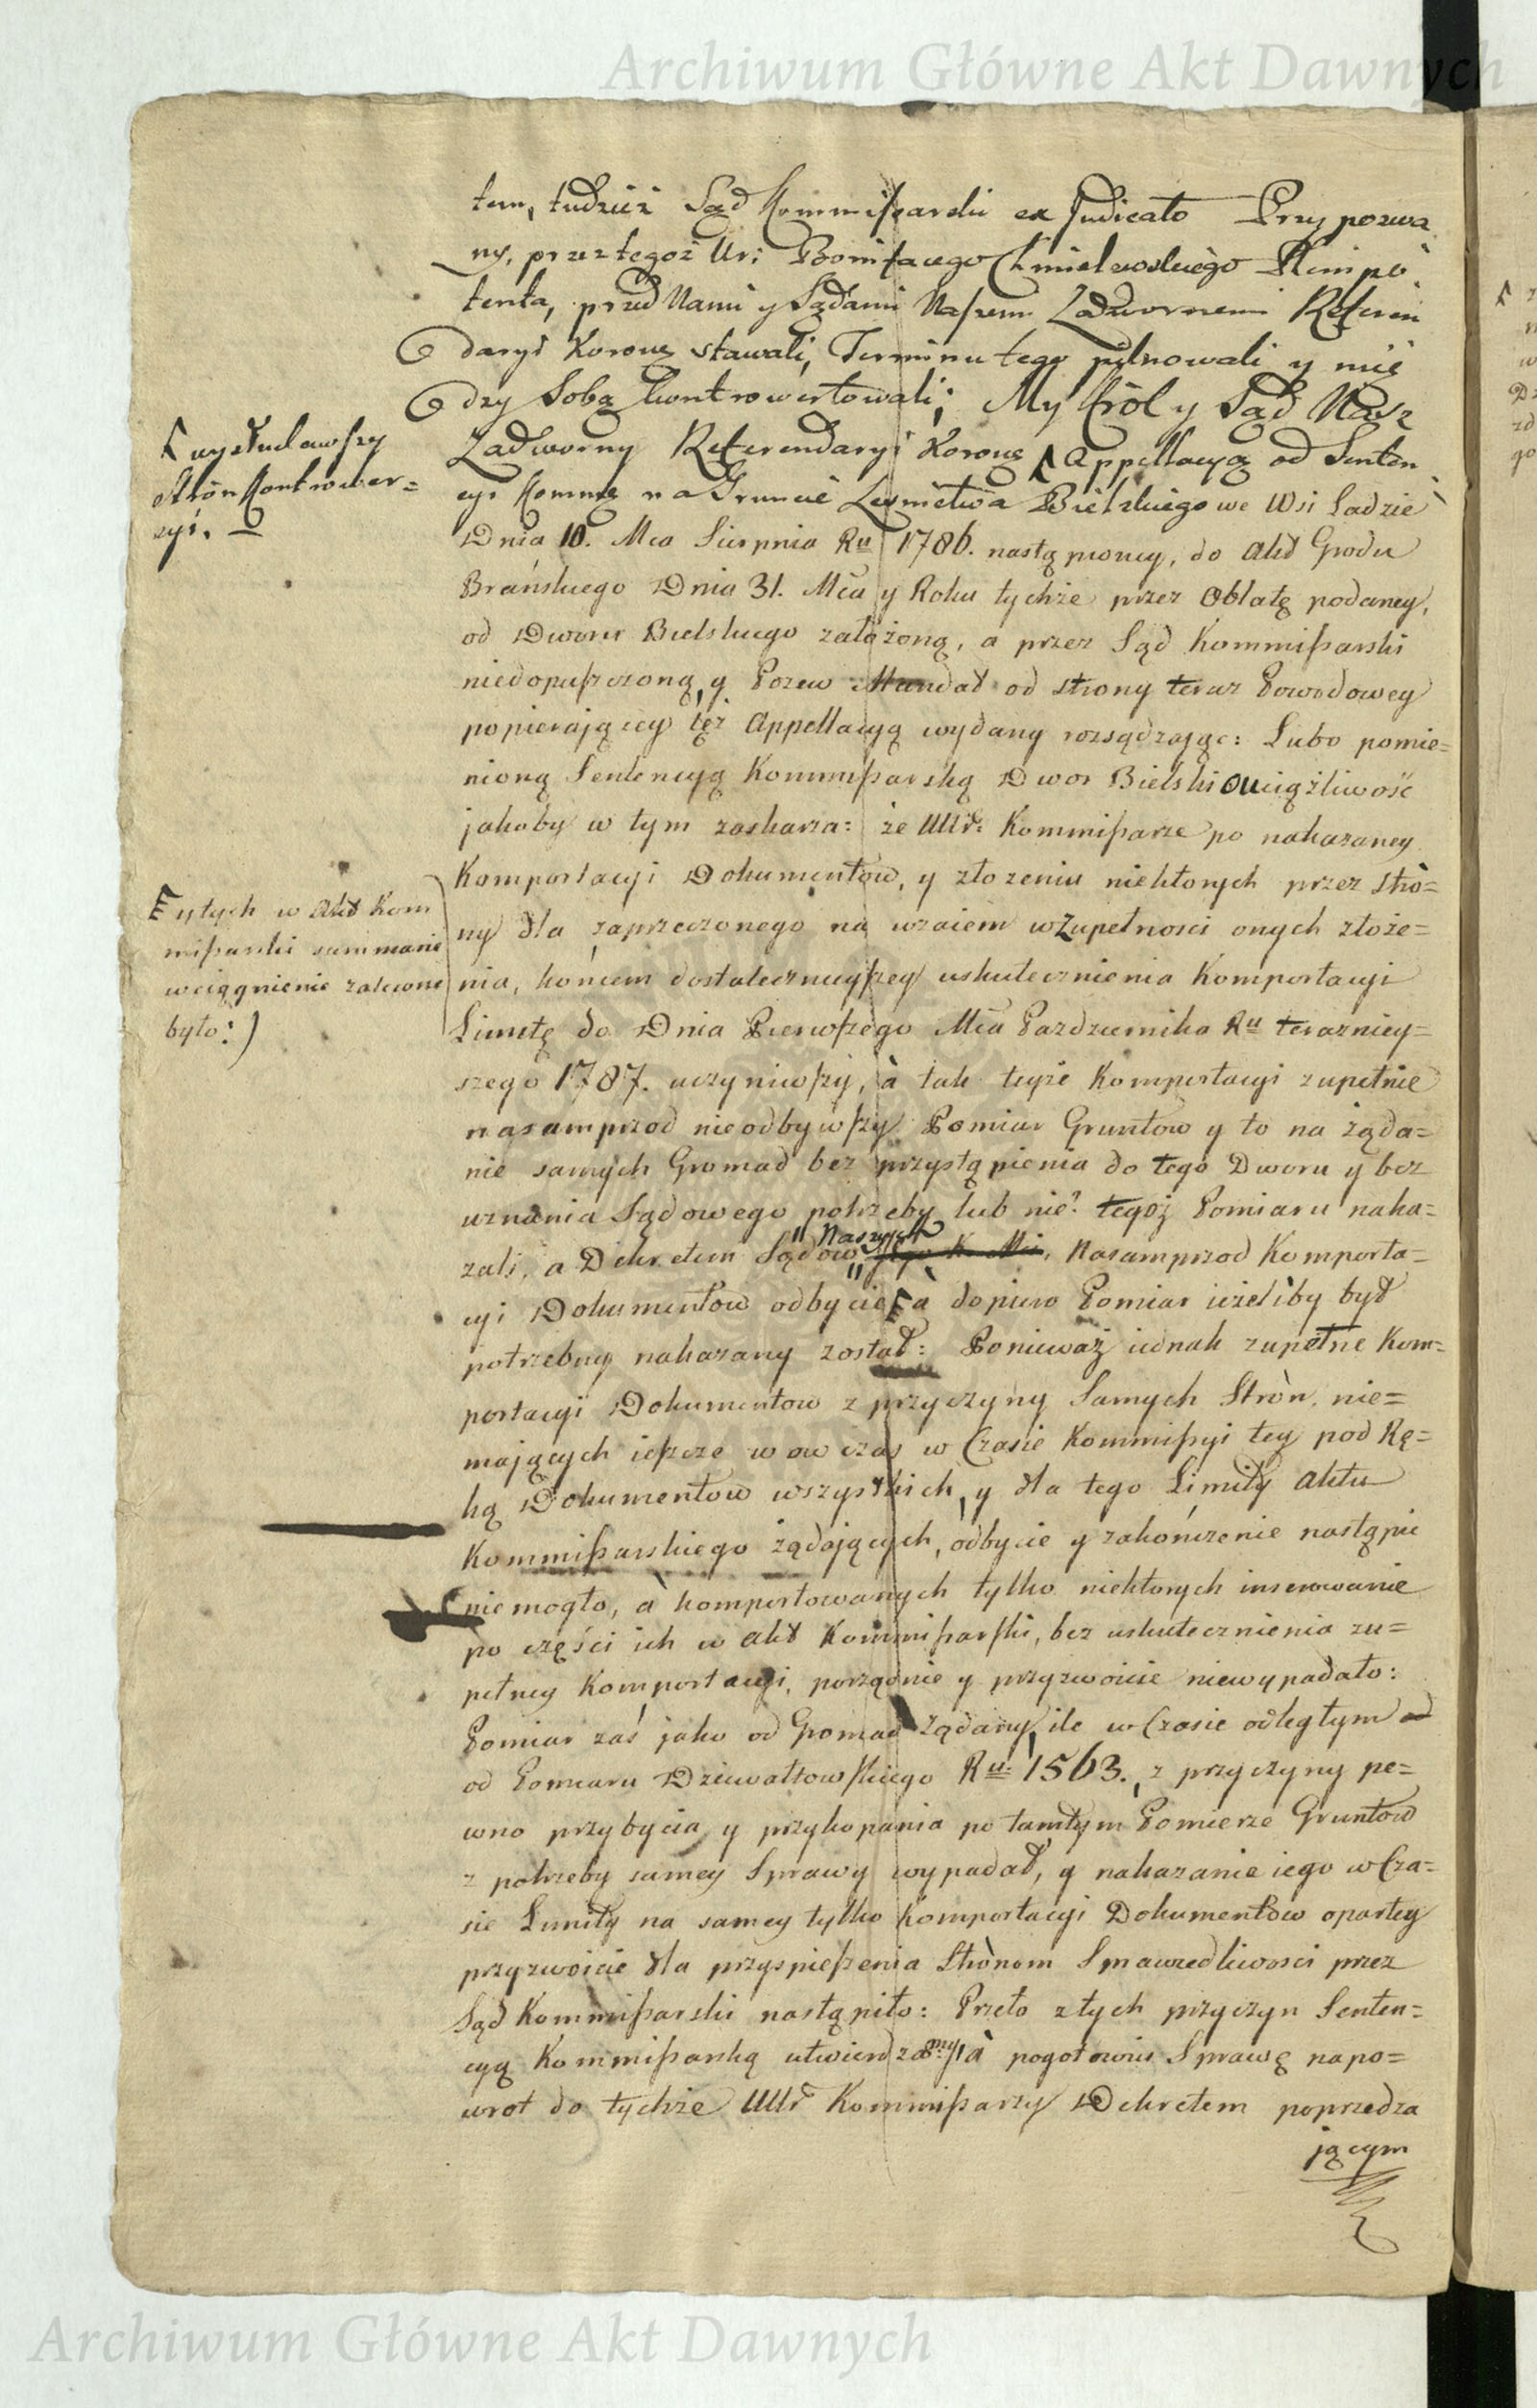 Archiwum Główne Akt Dawnych
tem, tudzież Sąd Kommissarski ex Judicato Przypozwa
ny, przez tegoż Ur: Bonifacego Chmielewskiego Plenipo
tenta, przed Nami y Sądami Naszemi Zadwornemi Referen
daryi Koronę stawali, Terminu tego pilnowali y mię
dzy Sobą kontrowertowali; My Król y Sąd Nasz
Zadworny Referendaryi Koronę Appellacyą od Senten
cyi Kommę na Gruncie Leśnictwa Bielskiego we Wsi Ladzie
Dnia 10. Mca Sierpnia Ru 1786. nastąpioney, do Akt Grodu
Brańskiego Dnia 31. Mca y Roku tychże przez Oblatę podaney,
od Dworu Bielskiego założoną, a przez Sąd Kommissarski
niedopuszczoną, y Pozew Mandat od strony teraz Powodowey
popierający też Appellacyą wydany rozsądzając: Lubo pomie=
nioną Sentencyą Kommissarską Dwor Bielski o uciążliwość
jakoby w tym zaskarza: że UUr: Kommissarze po nakazaney
Komportacyi Dokumentow, y złożeniu niektorych przez stro=
ny dla zaprzeczonego na wzaiem w zupełnosci onych złoże=
nia, końcem dostatecznieyszey uskutecznienia Komportacyi
Limitę do Dnia Pierwszego Mca Pazdziernika Ru terazniey=
szego 1787. uczyniwszy, à tak teyże Komportacyi zupełnie
nasamprzod nieodbywszy Pomiar Gruntow y to na żąda=
nie samych Gromad bez przystąpienia do tego Dworu y bez
uznania Sądowego potrzeby lub nie? tegoż Pomiaru naka=
zali, a Dekretem Sądow Naszych Nasamprzod Komporta=
cyi Dokumentow odbycie à dopiero Pomiar ieżeliby był
potrzebny nakazany został: Ponieważ iednak zupełne Kom=
portacyi Dokumentow z przyczyny Samych Stròn, nie=
mających ieszcze w ow czas w Czasie Kommissyi tey pod Rę=
ką Dokumentow wszystkich, y dla tego Limity Aktu
Kommissarskiego żądających, odbycie y zakończenie nastąpic
niemogło, à komportowanych tylko niektorych inserowanie
po części ich w akt Kommissarski, bez uskutecznienia zu=
pełney Komportacyi, porządnie y przyzwoicie niewypadało:
Pomiar zaś jako od Gromad żądany, ile w Czasie odległym
od Pomiaru Dziewałtowskiego Ru: 1563., z przyczyny pe=
wno przybycia y przykopania po tamtym Pomierze Gruntow
z potrzeby samey Sprawy wypadał, y nakazanie iego w Cza=
sie Limity na samey tylko Komportacyi Dokumentow opartey
przyzwoicie dla przyspieszenia Stronom Sprawedliwosci przez
Sąd Kommissarski nastąpiło: Przeto z tych przyczyn Senten=
cyą Kommissarską utwierdzamy, à pogotowiu Sprawę napo=
wrot do tychże UUr Kommissarzy Dekretem poprzedza
jącym
wysłuchawszy
Strón Kontrower=
syi.
y tych w Akt Kom
missarski summarie
wciągnienie zalecone
było:)
Archiwum Główne Akt Dawnych